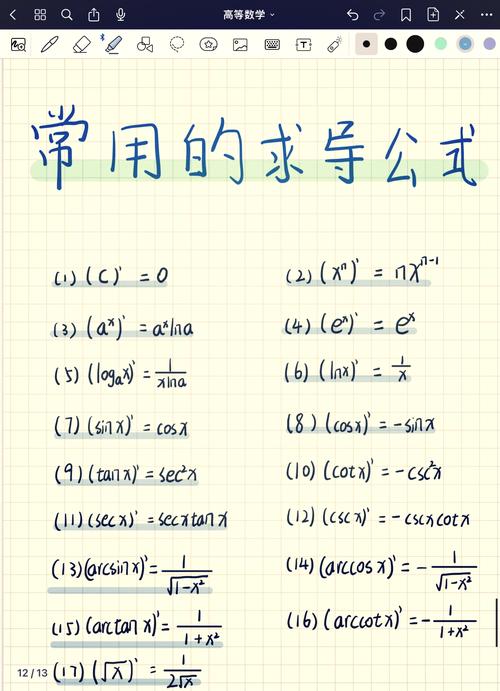 高等数学
常用的求导公式
(1) (C)' = 0
(2) (xⁿ)' = nxⁿ⁻¹
(3) (aˣ)' = aˣlna
(4) (eˣ)' = eˣ
(5) (logₐx)' = 1/xlna
(6) (lnx)' = 1/x
(7) (sinx)' = cosx
(8) (cosx)' = -sinx
(9) (tanx)' = sec²x
(10) (cotx)' = -csc²x
(11) (secx)' = secxtanx
(12) (cscx)' = -cscxcotx
(13) (arcsinx)' = 1/√(1-x²)
(14) (arccosx)' = - 1/√(1-x²)
(15) (arctanx)' = 1/(1+x²)
(16) (arccotx)' = - 1/(1+x²)
(17) (√x)' = 1/2√x
12/13